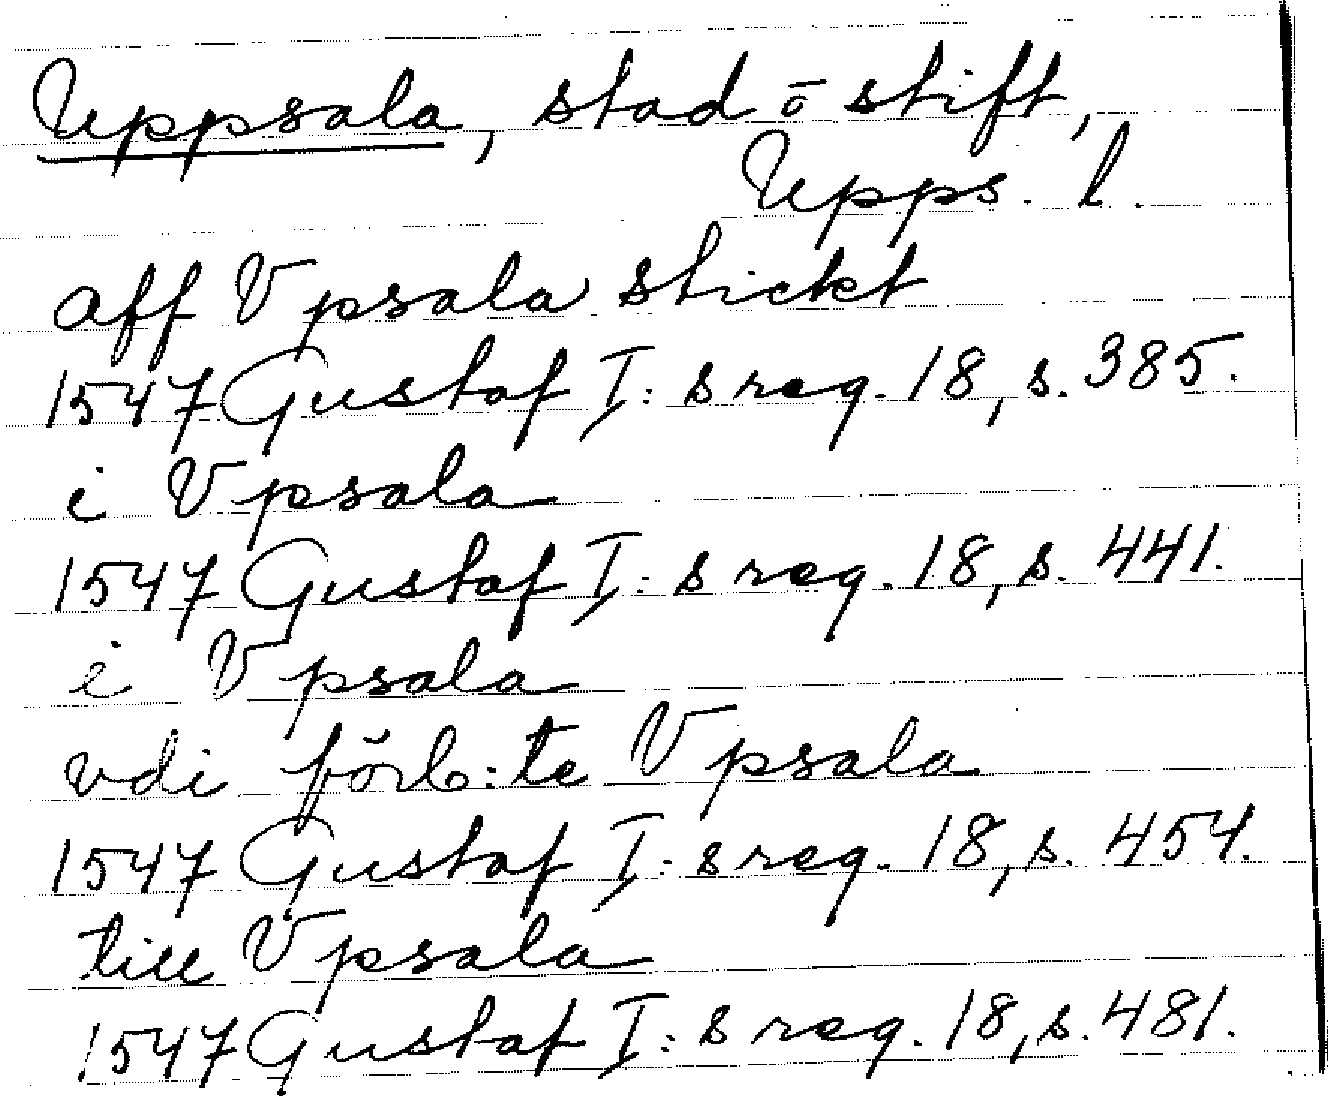 Uppsala, stad o stift,
Upps. l.
aff Vpsala stickt
1547 Gustaf I:s reg. 18, s. 385.
i Vpsala
1547 Gustaf I:s reg. 18, s. 441.
i Vpsala
vdi förb:te Vpsala
1547 Gustaf I:s reg. 18, s. 454.
till Vpsala
1547 Gustaf I:s reg. 18, s. 481.